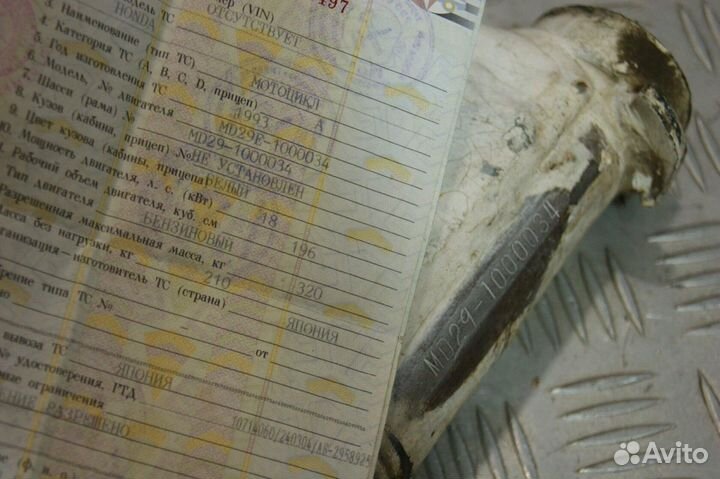 497
мер (VIN)
ОТСУТСТВУЕТ
дель ТС
HONDA
3. Наименование (тип ТС)
МОТОЦИКЛ
4. Категория ТС (A, B, C, D, прицеп)
A
5. Год изготовления ТС
1993
6. Модель, № двигателя
MD29E-1000034
7. Шасси (рама) №
MD29-1000034
8. Кузов (кабина, прицеп) №
НЕ УСТАНОВЛЕН
9. Цвет кузова (кабины, прицепа)
БЕЛЫЙ
10. Мощность двигателя, л. с. (кВт)
18
Рабочий объем двигателя, куб. см
196
Тип двигателя
БЕНЗИНОВЫЙ
Разрешенная максимальная масса, кг
320
асса без нагрузки, кг
210
ганизация-изготовитель ТС (страна)
ЯПОНИЯ
рение типа ТС №
-
от
вывоза ТС
ЯПОНИЯ
удостоверения, ГТД
10714060/240304/АБ-2958925
ные ограничения
ЕНИЕ РАЗРЕШЕНО
MD29-1000034
Avito